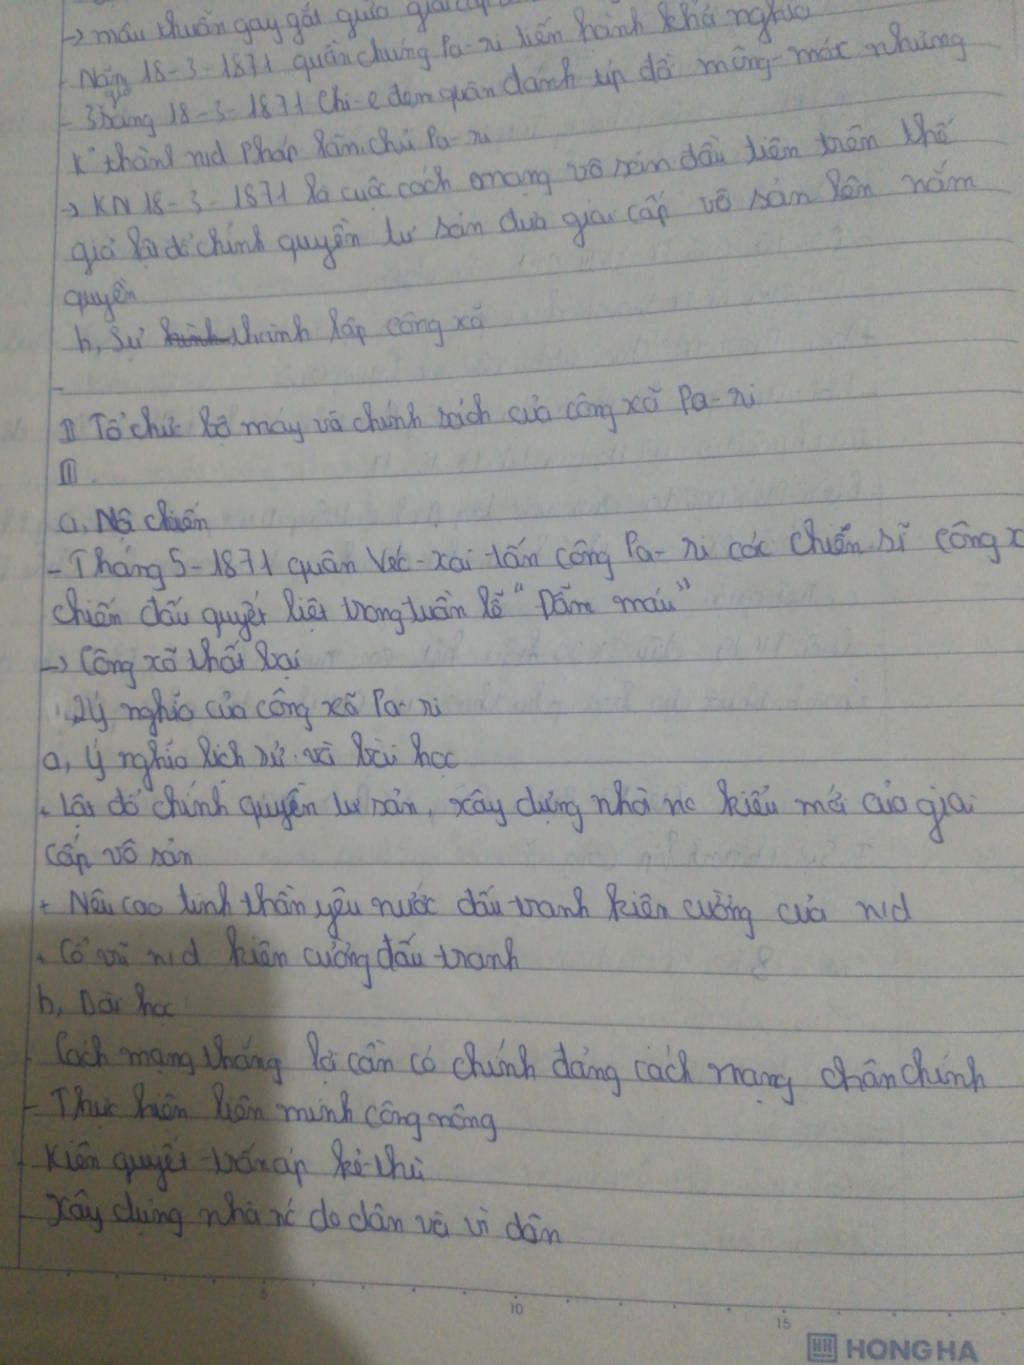 -> mâu thuẫn gay gắt giữa giai cấp
- Ngày 18-3-1871 quần chúng Pa-ri tiến hành khởi nghĩa
- Sáng 18-3-1871 Chi-e đem quân đánh úp đồi mông-mác nhưng
K° thành nd Pháp làm chủ Pa-ri
-> KN 18-3-1871 là cuộc cách mạng vô sản đầu tiên trên thế
giới lật đổ chính quyền tư sản đưa giai cấp vô sản lên nắm
quyền
b, Sự thành lập công xã
-
II Tổ chức bộ máy và chính sách của công xã Pa-ri
III.
a, Nội chiến
- Tháng 5-1871 quân Véc-xai tấn công Pa-ri các chiến sĩ công x
chiến đấu quyết liệt trong tuần lễ "Đẫm máu"
-> Công xã thất bại
2 Ý nghĩa của công xã Pa-ri
a, Ý nghĩa lịch sử và bài học
+ Lật đổ chính quyền tư sản, xây dựng nhà nc kiểu mới của giai
cấp vô sản
+ Nêu cao tinh thần yêu nước đấu tranh kiên cường của n/d
+ Cổ vũ n/d kiên cường đấu tranh
b, Bài học
- Cách mạng thắng lợi cần có chính đảng cách mạng chân chính
- Thực hiện liên minh công nông
- Kiên quyết trấn áp kẻ thù
- Xây dựng nhà nc do dân và vì dân
5 10 15
HH HONG HA